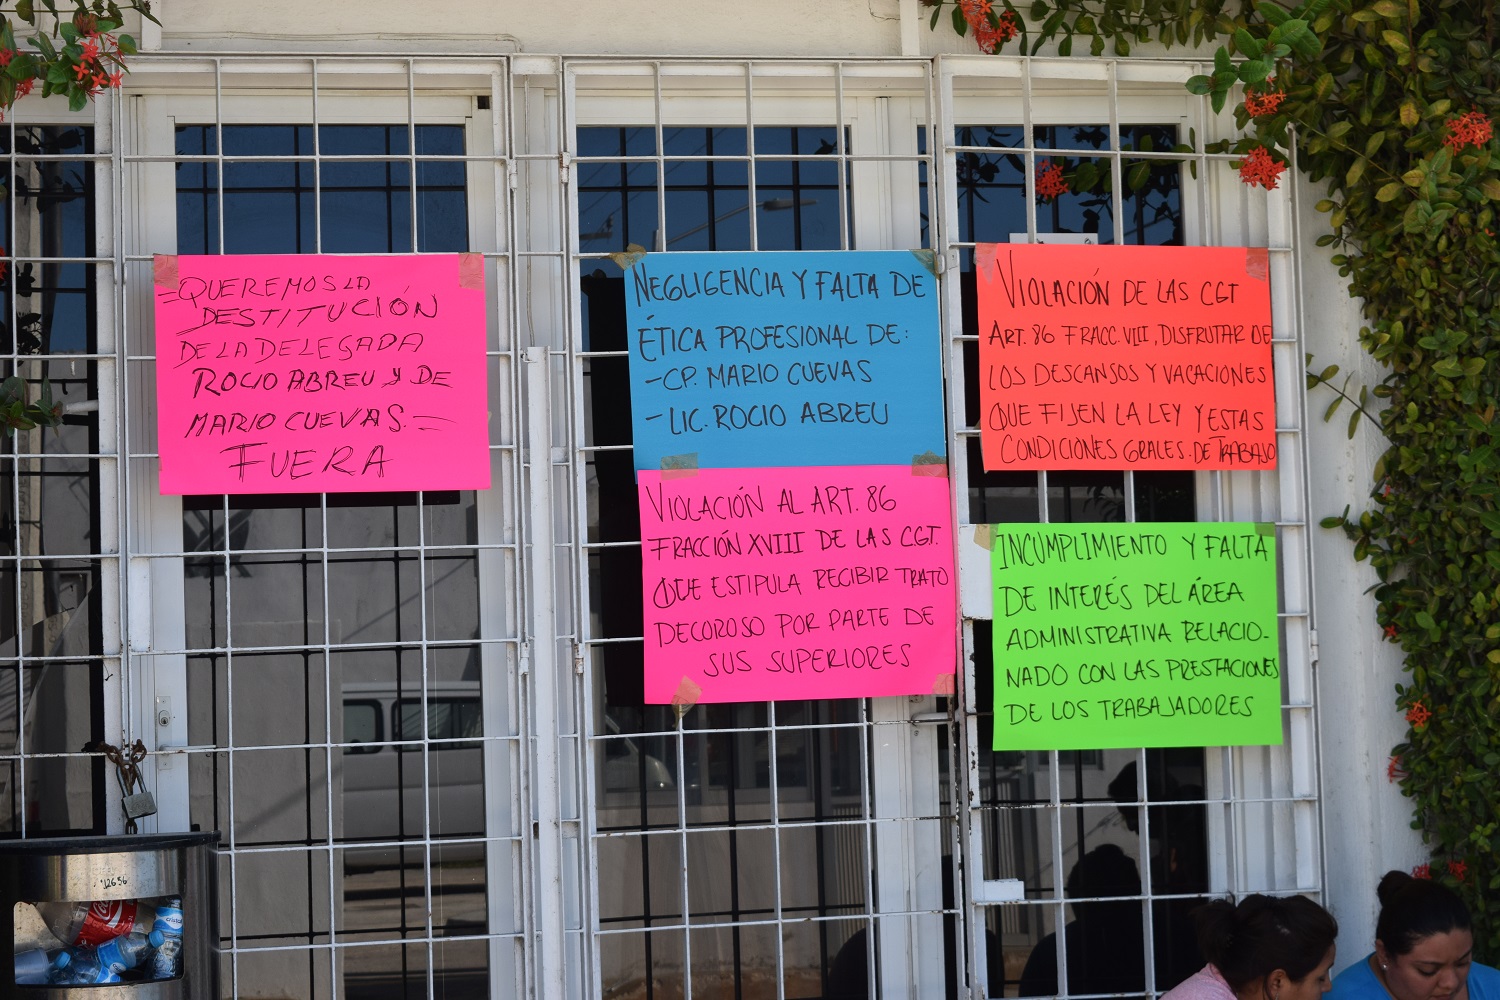 -QUEREMOS LA
DESTITUCIÓN
DE LA DELEGADA
ROCIO ABREU Y DE
MARIO CUEVAS.-
FUERA
NEGLIGENCIA Y FALTA DE
ÉTICA PROFESIONAL DE:
-CP. MARIO CUEVAS
-LIC. ROCIO ABREU
VIOLACIÓN AL ART. 86
FRACCIÓN XVIII DE LAS C.G.T.
QUE ESTIPULA RECIBIR TRATO
DECOROSO POR PARTE DE
SUS SUPERIORES
VIOLACIÓN DE LAS CGT
ART. 86 FRACC. VIII, DISFRUTAR DE
LOS DESCANSOS Y VACACIONES
QUE FIJEN LA LEY Y ESTAS
CONDICIONES GRALES. DE TRABAJO
INCUMPLIMIENTO Y FALTA
DE INTERÉS DEL ÁREA
ADMINISTRATIVA RELACIO-
NADO CON LAS PRESTACIONES
DE LOS TRABAJADORES